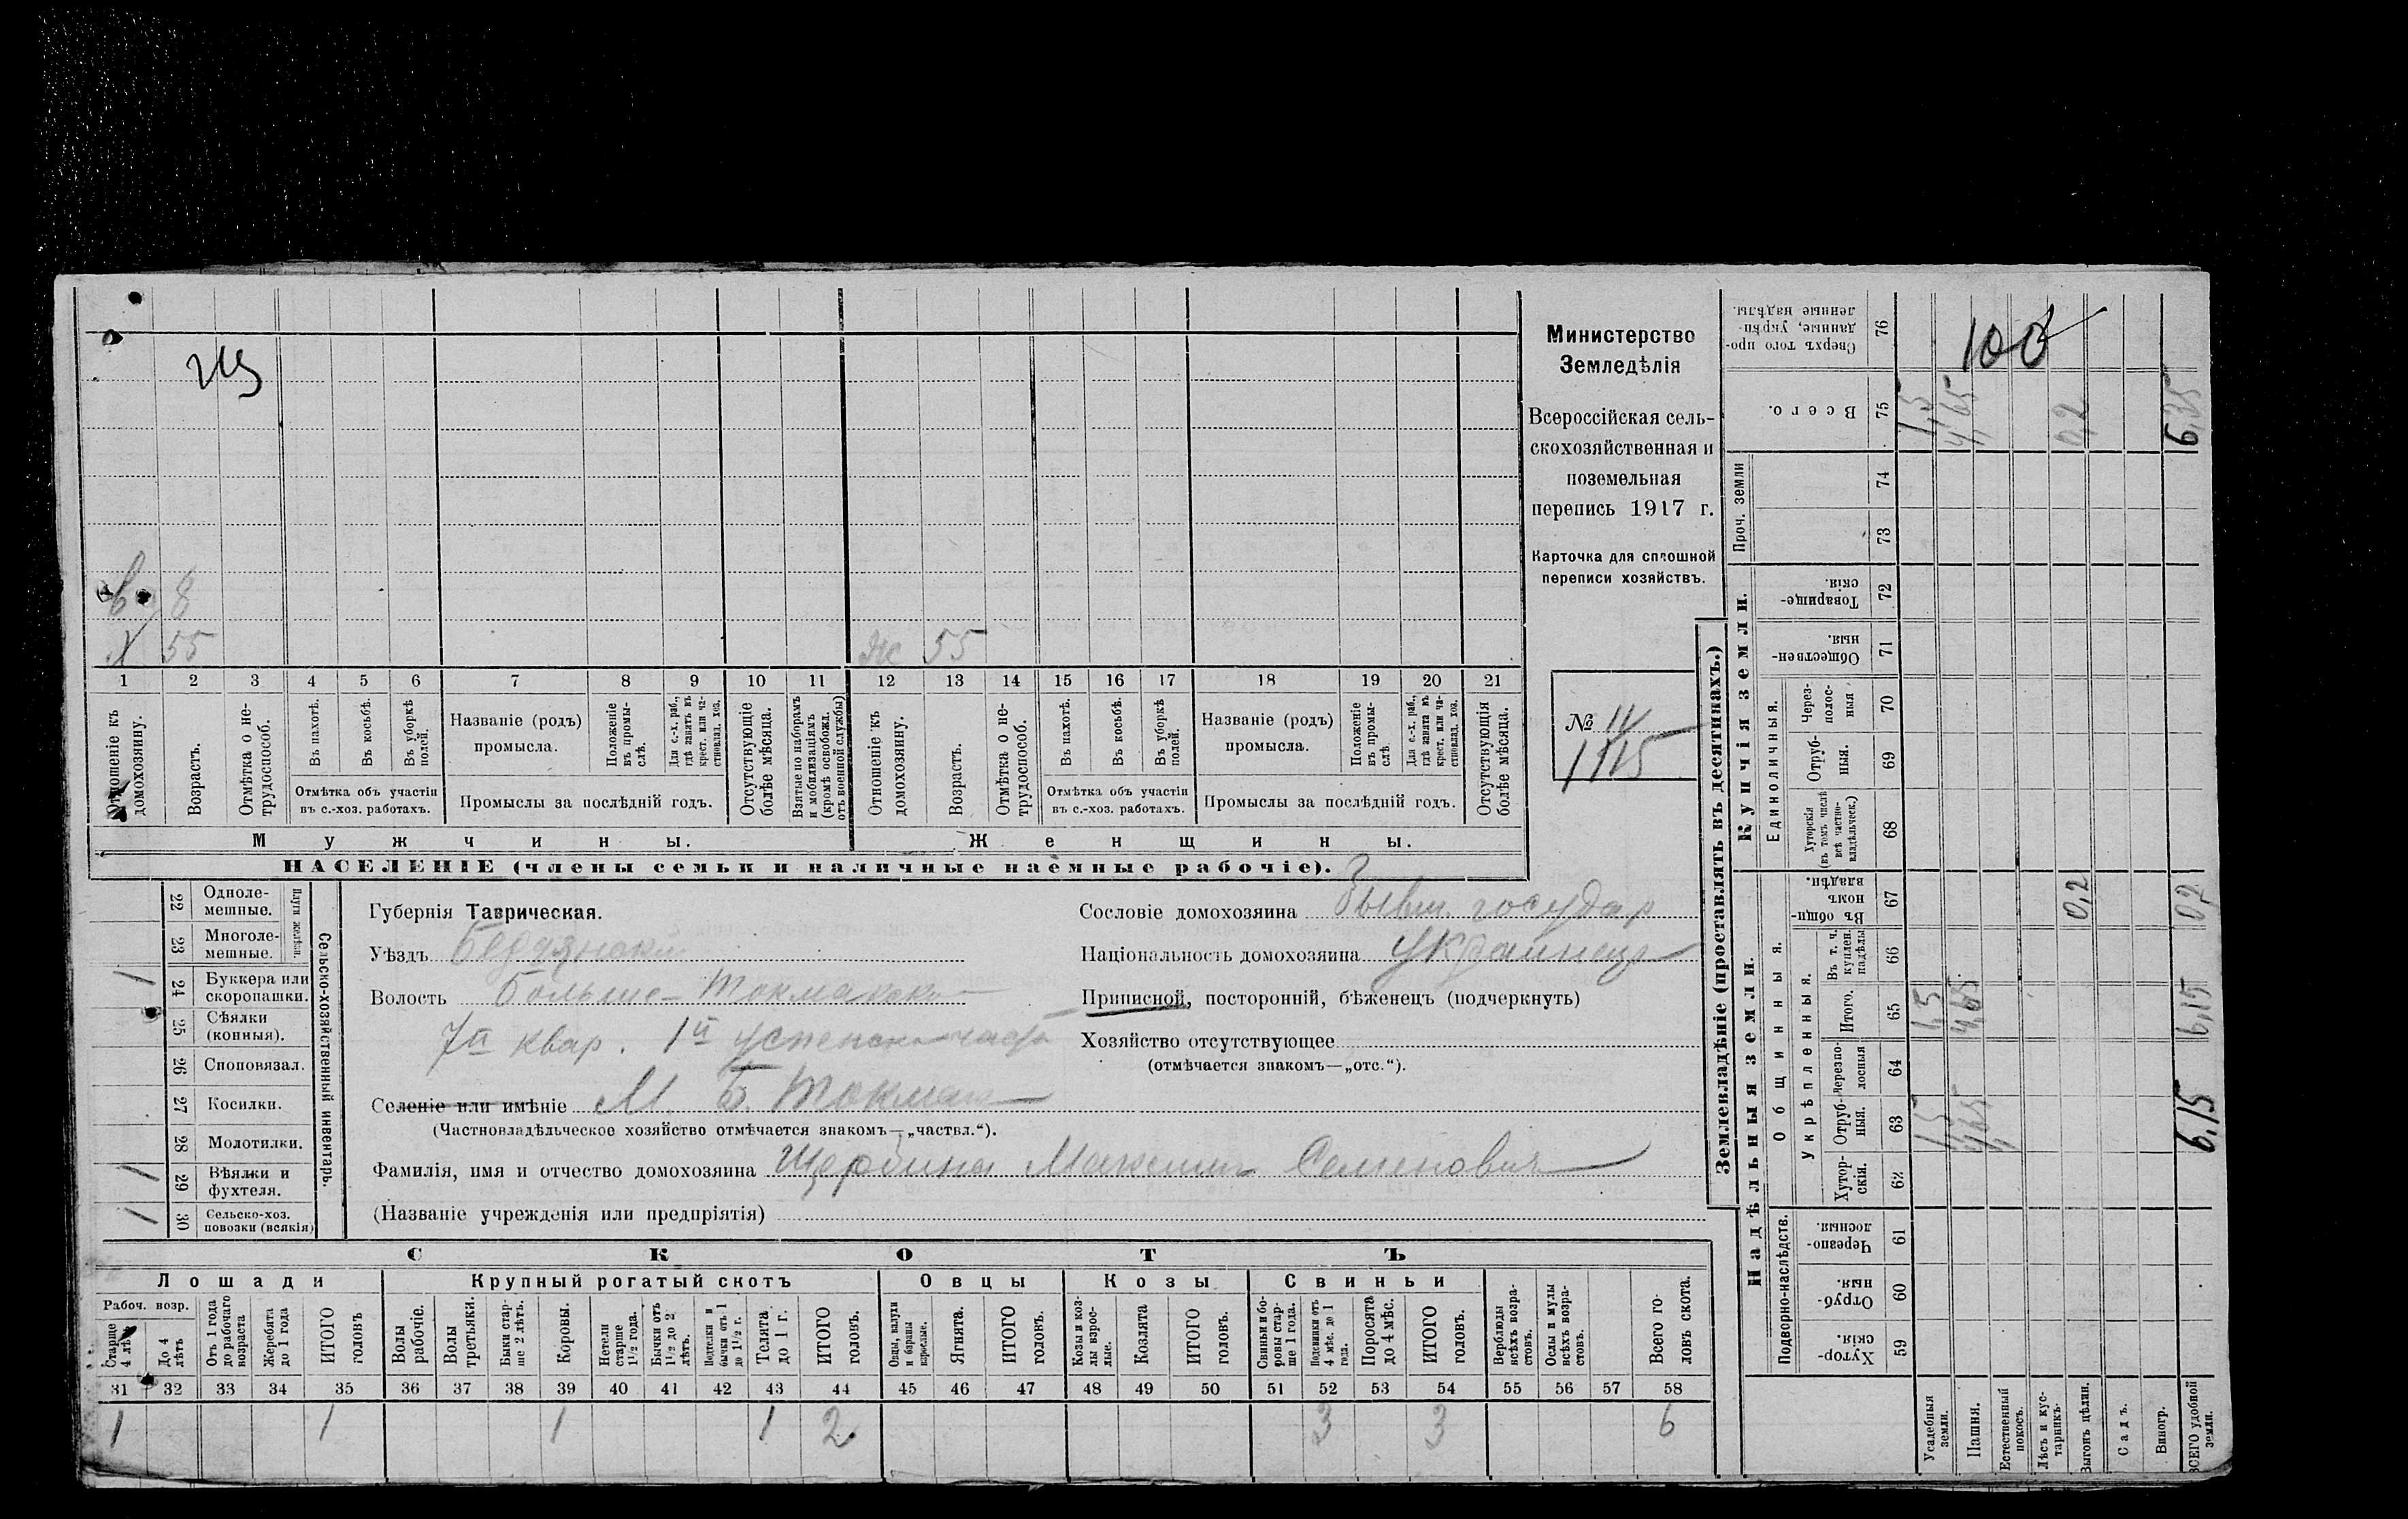 Министерство
Земледѣлія
Всероссійская сель-
скохозяйственная и
поземельная
перепись 1917 г.
Карточка для сплошной
переписи хозяйствъ.
№ 11
1115
8
Х 55
Ж 55
1 2 3 4 5 6 7 8 9 10 11 12 13 14 15 16 17 18 19 20 21
Отношеніе къ домохозяину.
Возрастъ.
Отмѣтка о не-трудоспособ.
Въ пахотѣ.
Въ косьбѣ.
Въ уборкѣ полей.
Отмѣтка объ участіи въ с.-хоз. работахъ.
Названіе (родъ) промысла.
Положеніе въ промы-слѣ.
Для с.-х. раб., гдѣ занятъ въ крест. или ча-стновлад. хоз.
Промыслы за послѣдній годъ.
Отсутствующіе болѣе мѣсяца.
Взятые по наборамъ и мобилизаціямъ (кромѣ освобожд. отъ военной службы)
Отношеніе къ домохозяину.
Возрастъ.
Отмѣтка о не-трудоспособ.
Въ пахотѣ.
Въ косьбѣ.
Въ уборкѣ полей.
Отмѣтка объ участіи въ с.-хоз. работахъ.
Названіе (родъ) промысла.
Положеніе въ промы-слѣ.
Для с.-х. раб., гдѣ занята въ крест. или ча-стновлад. хоз.
Промыслы за послѣдній годъ.
Отсутствующія болѣе мѣсяца.
Мужчины. Женщины.
НАСЕЛЕНІЕ (члены семьи и наличные наемные рабочіе).
Сельско-хозяйственный инвентарь.
Плуги желѣзн.
22 Одноле-мешные.
23 Многоле-мешные.
1 24 Буккера или скоропашки.
25 Сѣялки (конныя).
26 Сноповязал.
27 Косилки.
28 Молотилки.
1 29 Вѣялки и фухтеля.
1 30 Сельско-хоз. повозки (всякія)
Губернія Таврическая.
Уѣздъ Бердянски
Волость Больше-Токмакск
7й квар. 1й успенск часть
Селеніе или имѣніе М. Б. Токмак
(Частновладѣльческое хозяйство отмѣчается знакомъ—„частвл.“).
Фамилія, имя и отчество домохозяина Щербина Максим Семенович
(Названіе учрежденія или предпріятія)
Сословіе домохозяина Бывш. государ
Національность домохозяина украинец
Приписной, посторонній, бѣженецъ (подчеркнуть)
Хозяйство отсутствующее
(отмѣчается знакомъ—„отс.“).
СКОТЪ
Лошади Крупный рогатый скотъ Овцы Козы Свиньи
Рабоч. возр.
Старше 4 лѣтъ
До 4 лѣтъ
Отъ 1 года до рабочаго возраста
Жеребята до 1 года
ИТОГО головъ
Волы рабочіе.
Волы третьяки.
Быки стар-ше 2 лѣтъ.
Коровы.
Нетели старше 1½ года.
Бычки отъ 1½ до 2 лѣтъ.
Подтелки и бычки отъ 1 до 1½ г.
Телята до 1 г.
ИТОГО головъ.
Овцы, валухи и бараны взрослые.
Ягнята.
ИТОГО головъ.
Козы и коз-лы взрос-лые.
Козлята
ИТОГО головъ.
Свиньи и бо-ровы стар-ше 1 года.
Подсвинки отъ 4 мѣс. до 1 года.
Поросята до 4 мѣс.
ИТОГО головъ.
Верблюды всѣхъ возра-стовъ.
Ослы и мулы всѣхъ возра-стовъ.
Всего го-ловъ скота.
31 32 33 34 35 36 37 38 39 40 41 42 43 44 45 46 47 48 49 50 51 52 53 54 55 56 57 58
1 1 1 1 2 3 3 6
Землевладѣніе (проставлять въ десятинахъ.)
Надѣльныя земли. Купчія земли. Проч. земли
Подворно-наслѣдств.
Общинныя.
Укрѣпленныя.
Единоличныя.
59 Хутор-скія.
60 Отруб-ныя.
61 Черезпо-лосныя.
62 Хутор-скія.
63 Отруб-ныя.
64 Черезпо-лосныя
65 Итого.
66 Въ т. ч. куплен. надѣлы
67 Въ общи-номъ владѣн.
68 Хуторскія (въ томъ числѣ всѣ частно-владѣльческ.)
69 Отруб-ныя.
70 Через-полос-ныя
71 Обществен-ныя.
72 Товарище-скія.
73
74
75 Всего.
76 Сверхъ того про-данные, укрѣп-ленные надѣлы.
Усадебныя земли. 1,5 1,5 1,5
Пашня. 4,65 4,65 4,65
Естественный покосъ.
Лѣсъ и кус-тарникъ.
Выгонъ цѣлин. 0,2 0,2
Садъ.
Виногр.
ВСЕГО удобной земли. 6,15 6,15 0,2 6,35
100